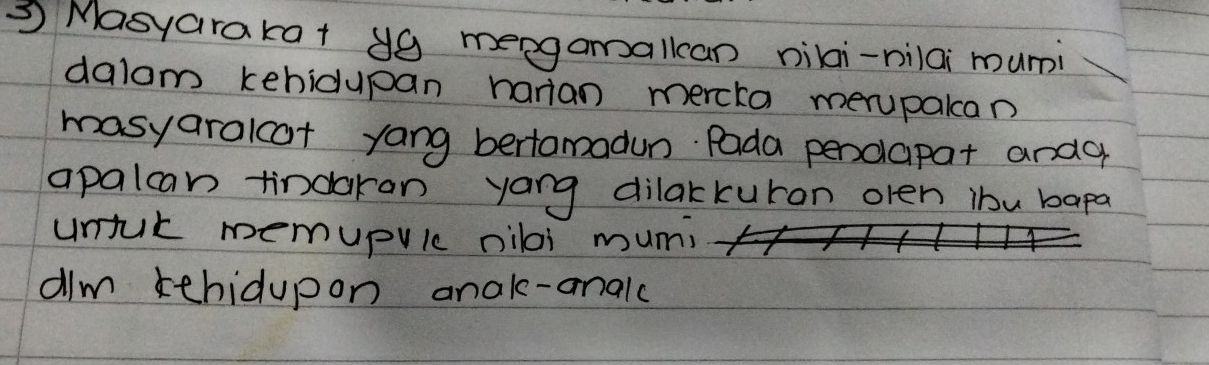 3) Masyarakat yg mengamalkan nilai-nilai murni
dalam kehidupan harian mereka merupakan
masyarakat yang bertamadun. Pada pendapat anda
apakah tindakan yang dilakkukan oleh ibu bapa
untuk memupuk nilai murni
dlm kehidupan anak-anak